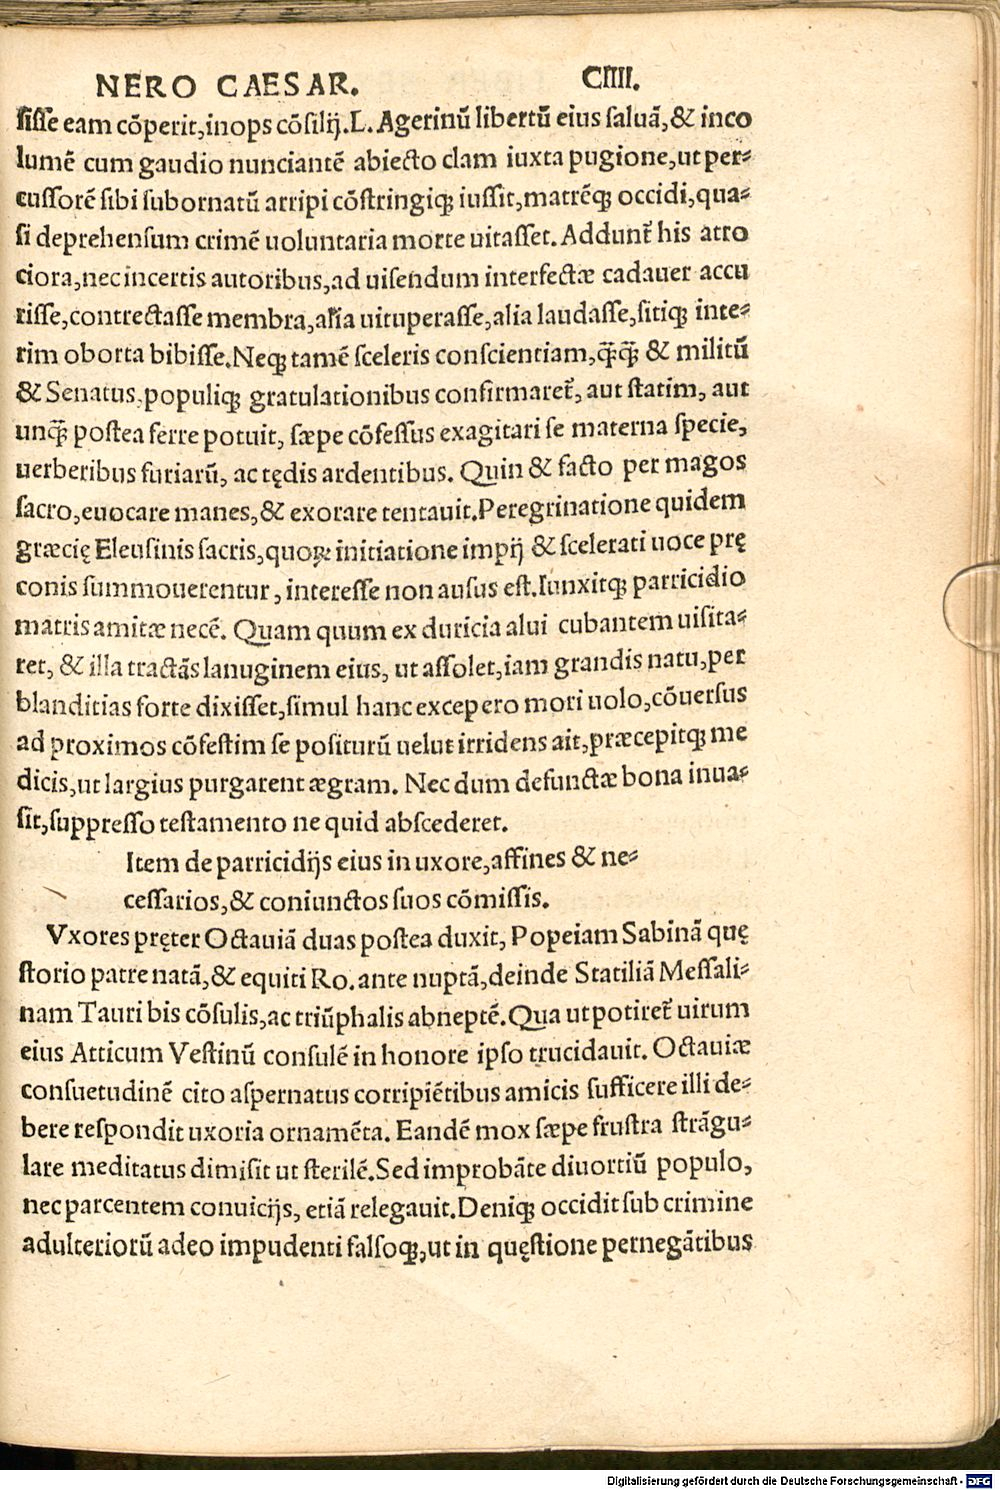 NERO CAESAR. CIIII.
sisse eam cōperit,inops cōsilij.L.Agerinū libertū eius saluā,& inco
lumē cum gaudio nunciantē abiecto clam iuxta pugione,ut per⸗
cussorē sibi subornatū arripi cōstringiqꝫ iussit,matrēqꝫ occidi,qua⸗
si deprehensum crimē uoluntaria morte uitasset.Addunt᷑ his atro
ciora,nec incertis autoribus,ad uisendum interfectæ cadauer accu
risse,contrectasse membra,alia uituperasse,alia laudasse,sitiqꝫ inte⸗
rim oborta bibisse.Neqꝫ tamē sceleris conscientiam,q̄q̄ & militū
& Senatus,populiqꝫ gratulationibus confirmaret᷑, aut statim, aut
unq̄ postea ferre potuit, sæpe cōfessus exagitari se materna specie,
uerberibus furiarū, ac tędis ardentibus. Quin & facto per magos
sacro,euocare manes,& exorare tentauit.Peregrinatione quidem
græcię Eleusinis sacris,quoꝝ initiatione impij & scelerati uoce prę
conis summouerentur, interesse non ausus est.Iunxitqꝫ parricidio
matris amitæ necē. Quam quum ex duricia alui cubantem uisita⸗
ret, & illa tractās lanuginem eius, ut assolet,iam grandis natu,per
blanditias forte dixisset,simul hanc excepero mori uolo,cōuersus
ad proximos cōfestim se positurū uelut irridens ait,præcepitqꝫ me
dicis,ut largius purgarent ægram. Nec dum defunctæ bona inua⸗
sit,suppresso testamento ne quid abscederet.
Item de parricidijs eius in uxore,affines & ne⸗
cessarios,& coniunctos suos cōmissis.
Vxores pręter Octauiā duas postea duxit, Popeiam Sabinā quę
storio patre natā,& equiti Ro. ante nuptā,deinde Statiliā Messali⸗
nam Tauri bis cōsulis,ac triūphalis abneptē.Qua ut potiret᷑ uirum
eius Atticum Vestinū consulē in honore ipso trucidauit. Octauiæ
consuetudinē cito aspernatus corripiētibus amicis sufficere illi de⸗
bere respondit uxoria ornamēta. Eandē mox sæpe frustra strāgu⸗
lare meditatus dimisit ut sterilē.Sed improbāte diuortiū populo,
nec parcentem conuicijs, etiā relegauit.Deniqꝫ occidit sub crimine
adulteriorū adeo impudenti falsoqꝫ,ut in quęstione pernegātibus
Digitalisierung gefördert durch die Deutsche Forschungsgemeinschaft - DFG